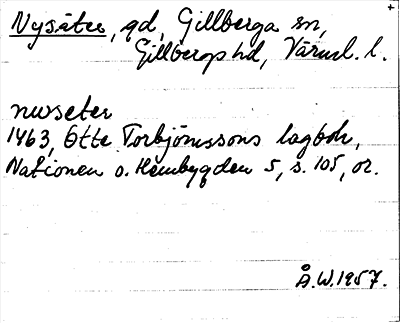 Nysäter, gd, Gillberga sn,
Gillbergs hd, Värml. l.
nwseter
1463, Otte Torbjörnssons lagbok,
Nationen o. Hembygden 5, s. 105, or.
Å.W. 1957.